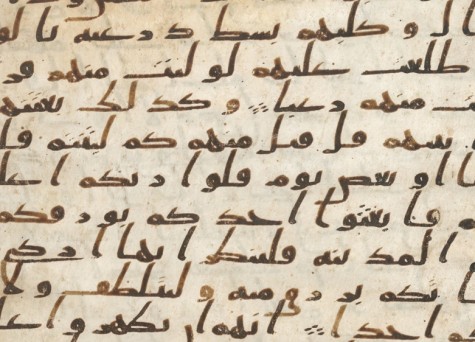 ال و كلبهم بسط ذرعيه بالو
طلعت عليهم لو ليت منهم فر
ت منهم رعبا و كذلك بعثنهم
بينهم قل قيل منهم كم لبثتم قا
ا او بعض يوم قلوا ربكم اعل
فابعثوا احدكم بورقكم
المدينه فلينظر ايها ازكى
تيكم برزق منه و ليتلطف و لا
احدا انهم ان يظهروا عل